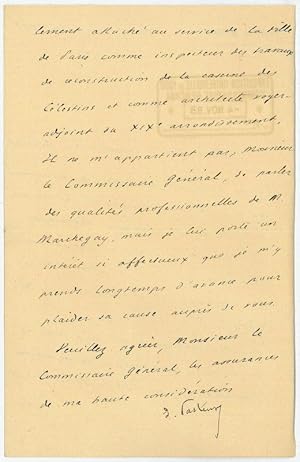 lement attaché au service de la Ville
de Paris comme inspecteur des travaux
de reconstruction de la caserne des
Célestins et comme architecte voyer-
adjoint du XIXe arrondissement.
Il ne m'appartient pas, Monsieur
le Commissaire Général, de parler
des qualités professionnelles de M.
Marchegay, mais je lui porte un
intérêt si affectueux que je m'y
prends longtemps d'avance pour
plaider sa cause auprès de vous.
Veuillez agréer, Monsieur le
Commissaire Général, les assurances
de ma haute considération